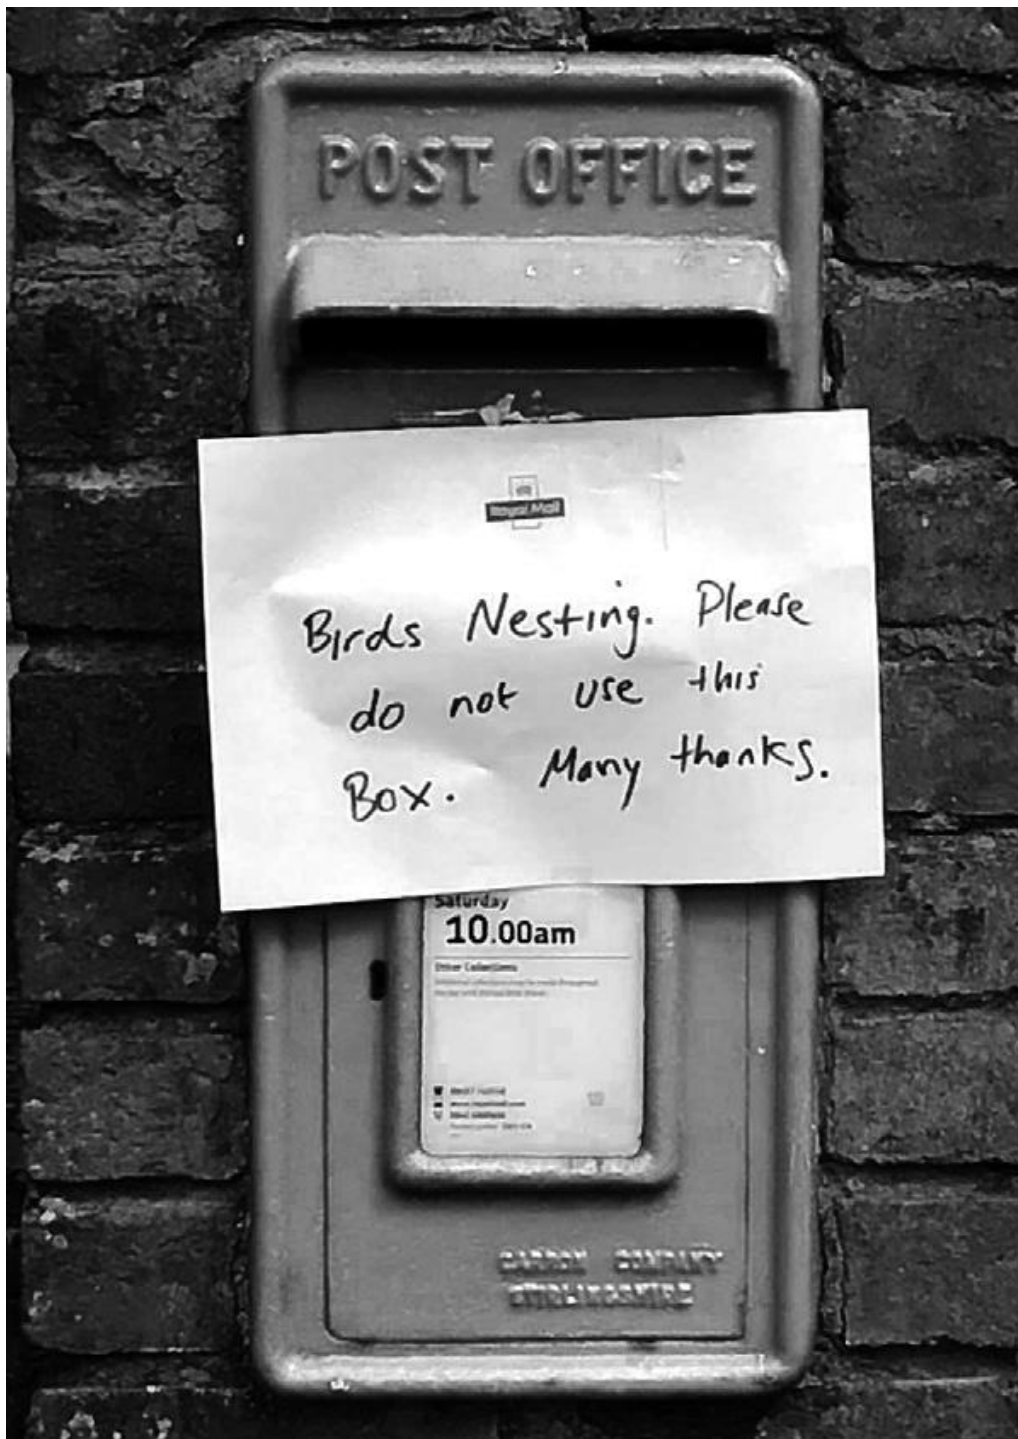 POST OFFICE
Royal Mail
Birds Nesting. Please
do not use this
Box. Many thanks.
Saturday
10.00am
Other Collections
CARRON COMPANY
STIRLINGSHIRE